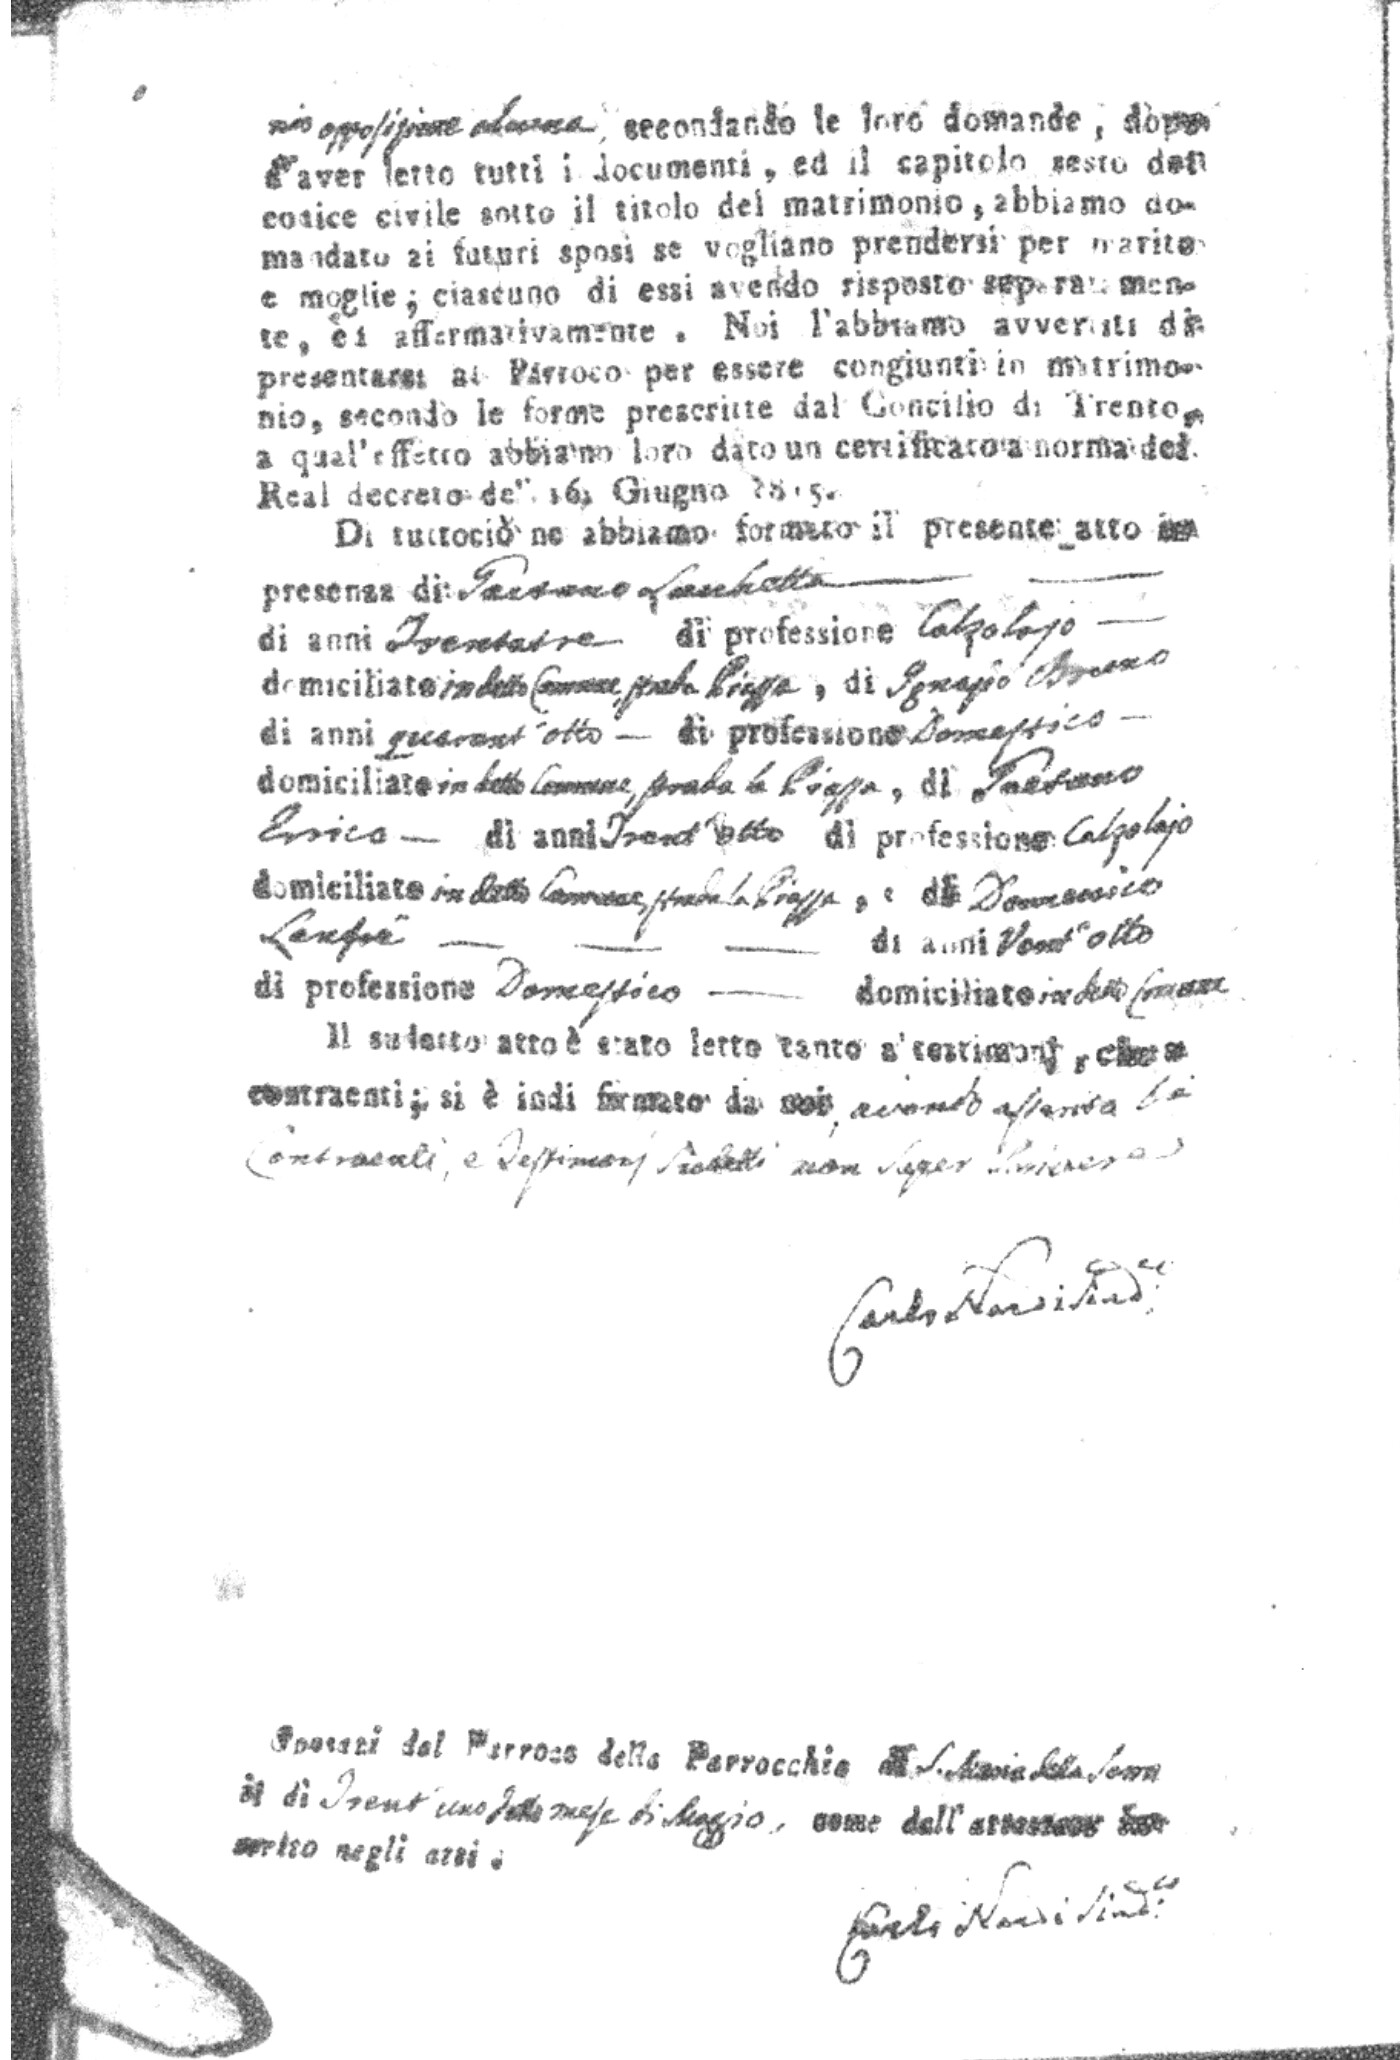 opposizione alcuna, secondando le loro domande, dopo
d'aver letto tutti i documenti, ed il capitolo sesto del
codice civile sotto il titolo del matrimonio, abbiamo do-
mandato ai futuri sposi se vogliano prendersi per marito
e moglie; ciascuno di essi avendo risposto separatamen-
te, ed affermativamente. Noi l'abbiamo avvertiti di
presentarsi al Parroco per essere congiunti in matrimo-
nio, secondo le forme prescritte dal Concilio di Trento,
a qual'effetto abbiamo loro dato un certificato a norma del
Real decreto de' 16 Giugno 1815.
Di tuttociò ne abbiamo formato il presente atto in
presenza di Gaetano Lanchetta
di anni Trentatre di professione Calzolajo
domiciliato in detto Comune, strada Piazza, di Ignazio Bruno
di anni quarant'otto di professione Domestico
domiciliato in detto Comune, strada la Piazza, di Gaetano
Errico di anni Trent'otto di professione Calzolajo
domiciliato in detto Comune, strada la Piazza, e di Domenico
di anni Vent'otto
di professione Domestico domiciliato in detto Comune
Il sudetto atto è stato letto tanto a' testimonj, che a
contraenti; si è indi firmato da noi, avendo asserito li
Contraenti, e Testimonj sudetti non saper scrivere
Carlo Nardi Sind.co
Sposati dal Parroco della Parrocchia di S. Maria della
il dì Trent'uno detto mese di Maggio, come dall'attestato in-
serito negli atti.
Carlo Nardi Sind.co